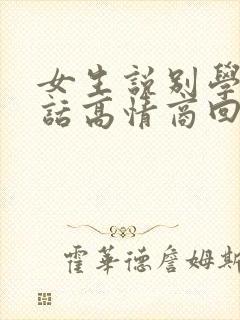 女生說別學
話高情商回
霍華德詹姆斯